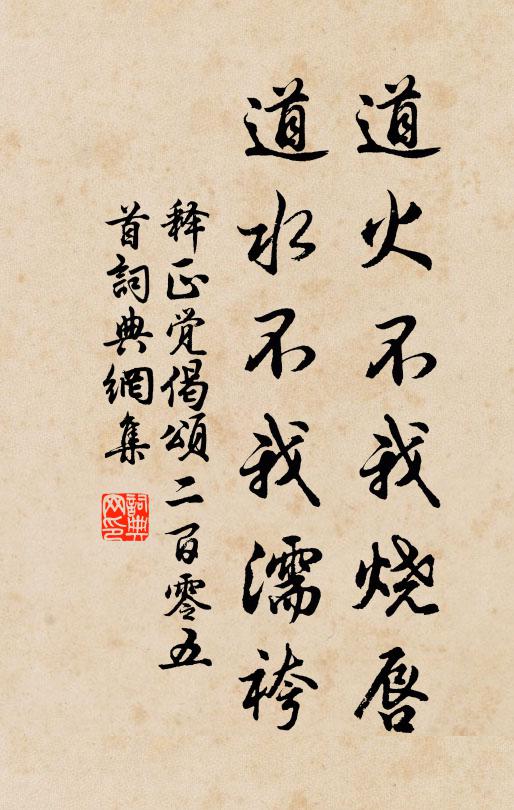 道火不我烧唇
道水不我濡袴
释正觉偈頌二百零五
首詞典網集
詞典
网印